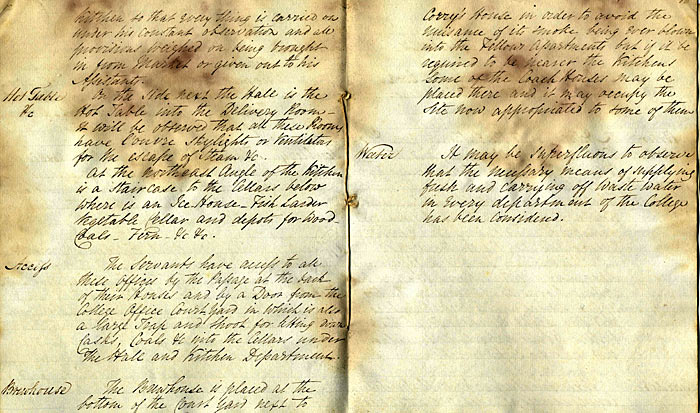 Kitchen so that every thing is carried on
under his constant observation and all
provisions weighed on being brought
in from Market or given out to his
Assistant.
Hot Table &c
On the side next the Hall is the
Hot Table into the Delivery Room -
it will be observed that all these Rooms
have Louvre Skylights or Ventilators
for the escape of Steam &c.
At the Northeast Angle of the Kitchen
is a Staircase to the Cellars below
where is an Ice House - Fish Larder
Vegetable Cellar and depots for Wood
Coals - Fern - &c &c.
Access
The Servants have access to all
these Offices by the Passage at the back
of their Houses and by a Door from the
College Office Court Yard in which is also
a large Trap and Shoot for letting down
Casks, Coals &c into the Cellars under
the Hall and Kitchen Department.
Brewhouse
The Brewhouse is placed at the
bottom of the Court Yard next to
Corry's House in order to avoid the
nuisance of its smoke being ever blown
into the Fellows Apartments but if it be
required to be nearer the Kitchens
some of the Coach Houses may be
placed there and it may occupy the
site now appropriated to some of them
Water
It may be Superfluous to observe
that the necessary means of supplying
fresh and carrying off Waste Water
in every department of the College
has been considered.